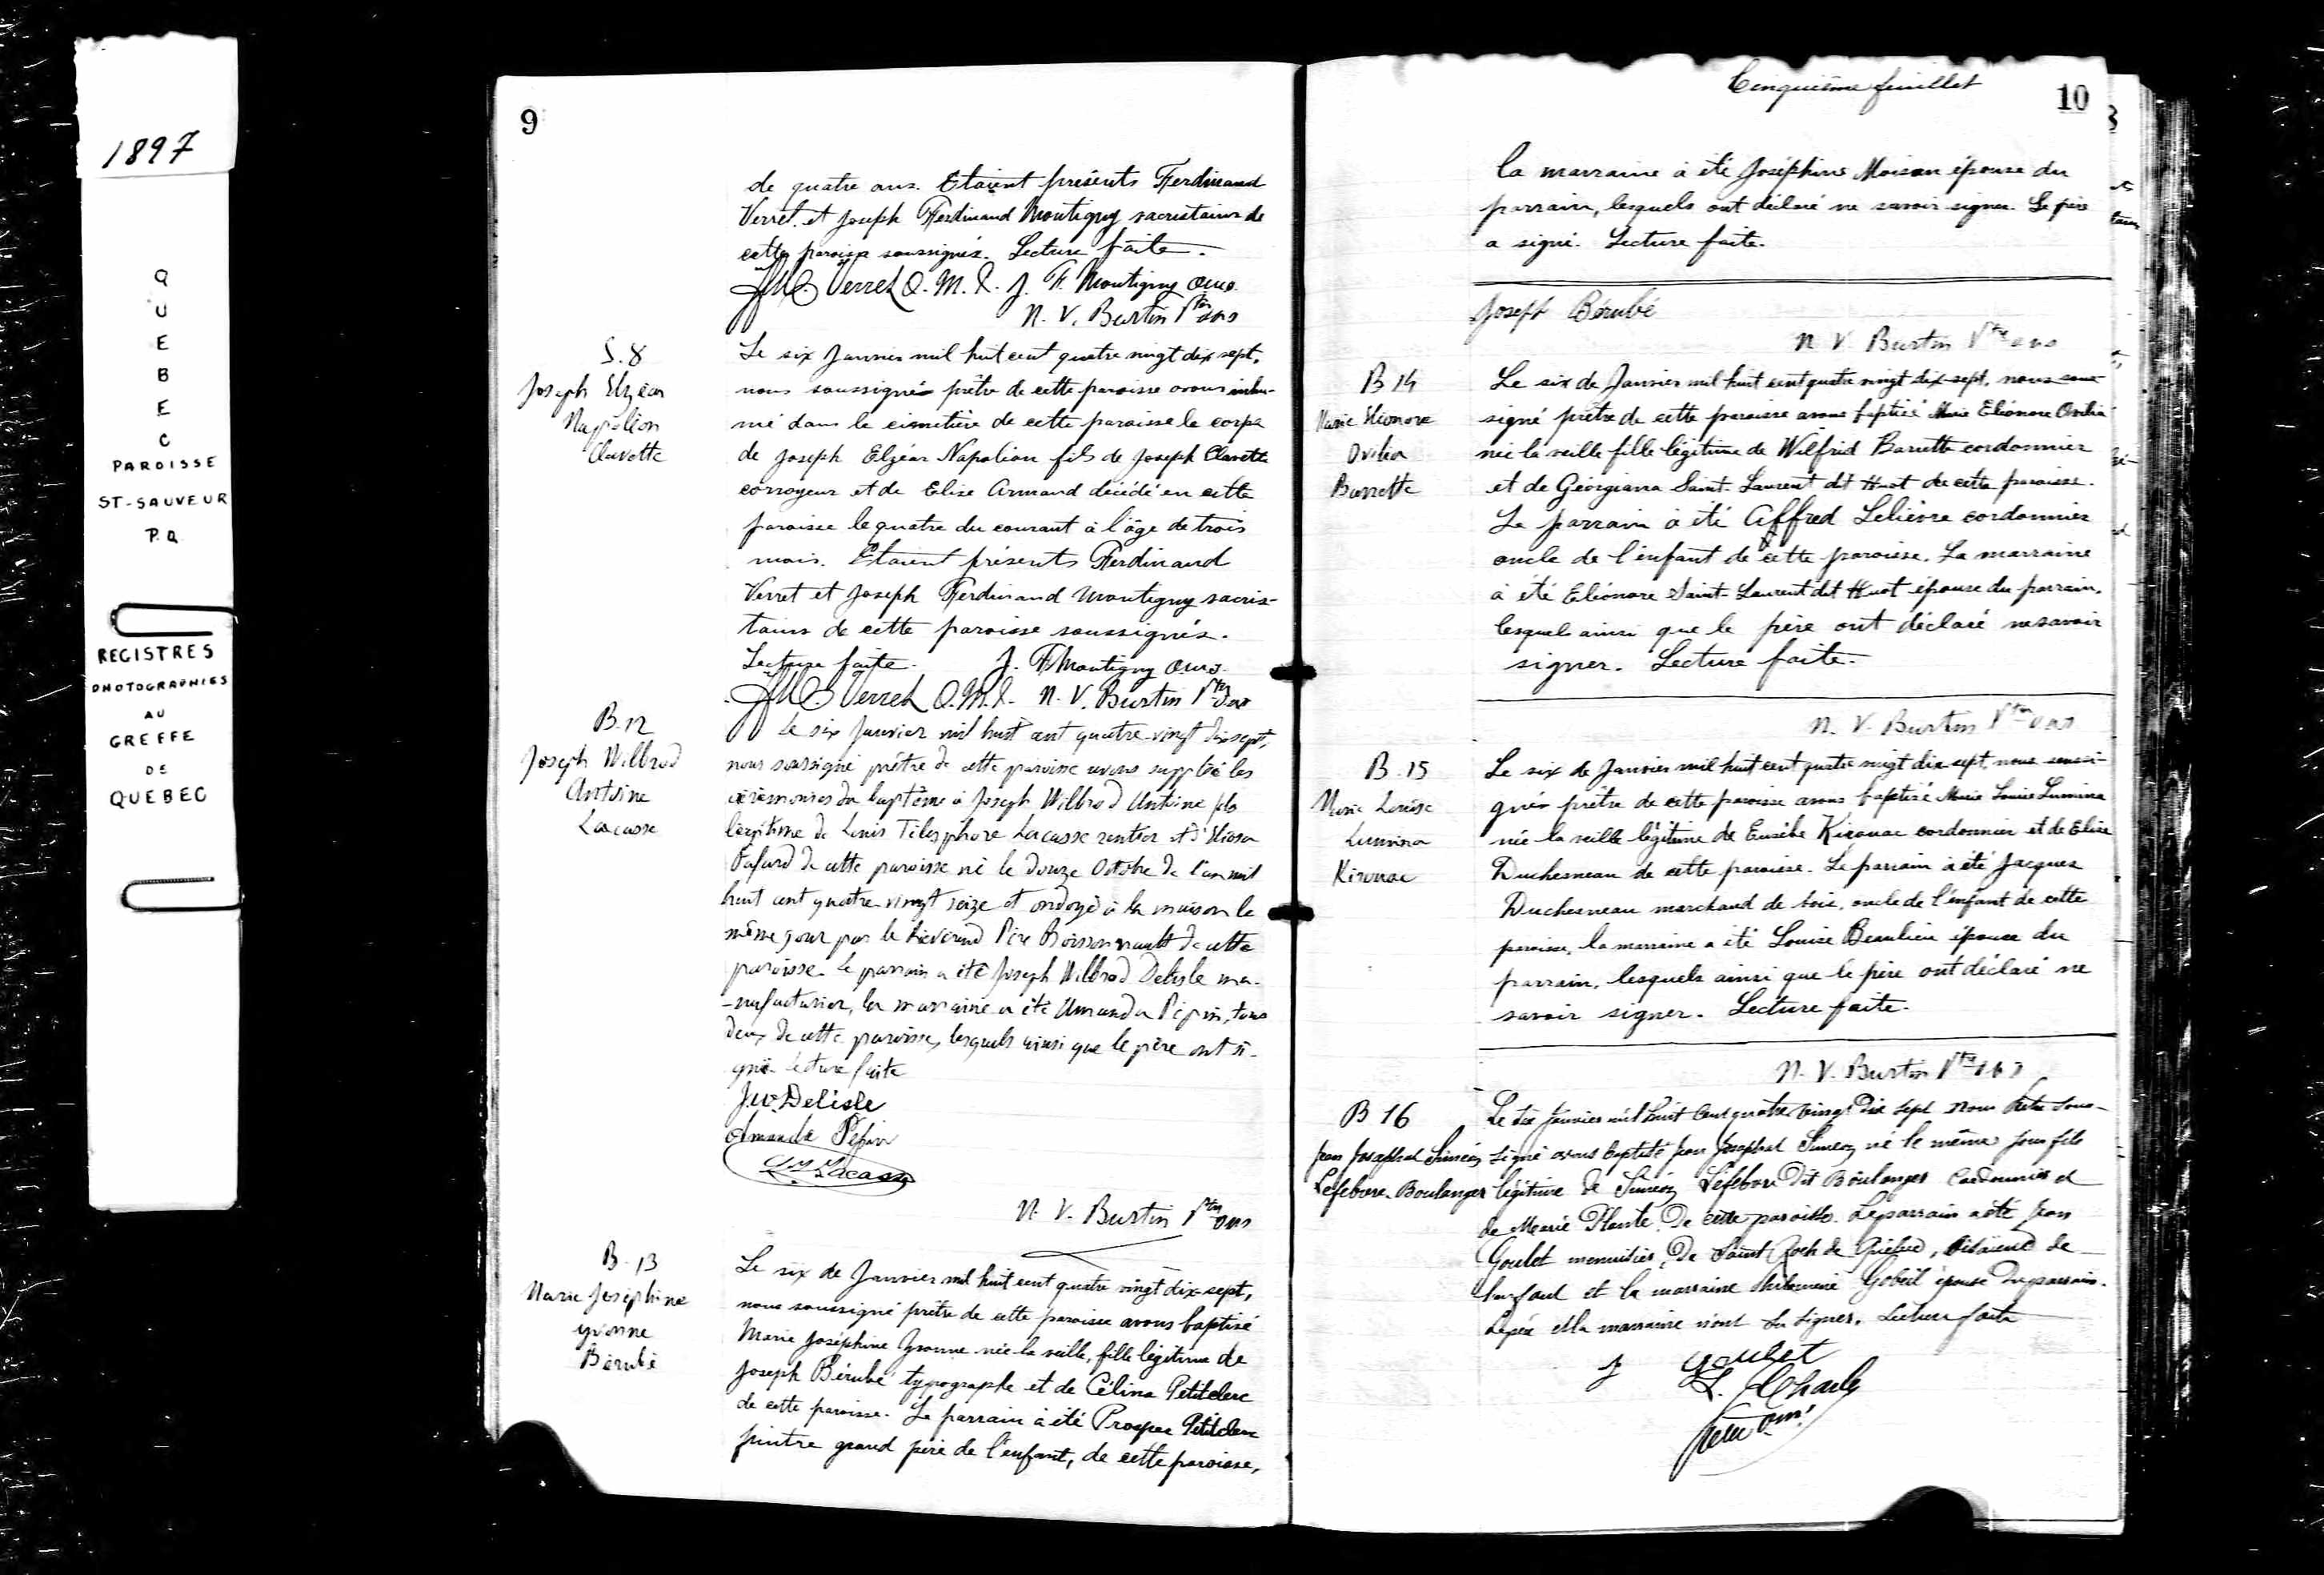 1897
QUEBEC
PAROISSE
ST-SAUVEUR
P.Q.
REGISTRES
PHOTOGRAPHIES
AU
GREFFE
DE
QUEBEC
9
de quatre ans. Etaient présents Ferdinand
Verret et Joseph Ferdinand Montigny sacristains de
cette paroisse soussignés. Lecture faite.
Verret O.M.I. J. F. Montigny
N. V. Burtin Ptre
S. 8
Joseph Elzéar
Napoléon
Clavette
Le six Janvier mil huit cent quatre vingt dix sept,
nous soussigné prêtre de cette paroisse avons inhu-
mé dans le cimetière de cette paroisse le corps
de Joseph Elzéar Napoléon fils de Joseph Clavette
corroyeur et de Elise Armand décédé en cette
paroisse le quatre du courant à l'âge de trois
mois. Etaient présents Ferdinand
Verret et Joseph Ferdinand Montigny sacris-
tains de cette paroisse soussignés.
Lecture faite. J. F. Montigny
Verret O.M.I. N. V. Burtin Ptre
B. 12
Joseph Wilbrod
Antoine
Lacasse
Le six Janvier mil huit cent quatre-vingt dix sept,
nous soussigné prêtre de cette paroisse avons suppléé les
cérémonies du baptême à Joseph Wilbrod Antoine fils
légitime de Louis Télesphore Lacasse rentier et d'
de cette paroisse né le douze Octobre de l'an mil
huit cent quatre-vingt seize et ondoyé à la maison le
même jour par le Révérend Père Boissonnault de cette
paroisse. Le parrain a été Joseph Wilbrod Delisle ma-
-nufacturier, la marraine a été Amanda Pépin, tous
deux de cette paroisse, lesquels ainsi que le père ont si-
gné. Lecture faite
J. W. Delisle
Amanda Pépin
Lacasse
N. V. Burtin Ptre
B. 13
Marie Joséphine
Yvonne
Bérubé
Le six de Janvier mil huit cent quatre vingt dix-sept,
nous soussigné prêtre de cette paroisse avons baptisé
Marie Joséphine Yvonne née la veille, fille légitime de
Joseph Bérubé typographe et de Célina Petitclerc
de cette paroisse. Le parrain à été Prosper Petitclerc
peintre grand père de l'enfant, de cette paroisse,
Cinquième feuillet
10
la marraine à été Joséphine Moisan épouse du
parrain, lesquels ont déclaré ne savoir signer. Le père
a signé. Lecture faite.
Joseph Bérubé
N. V. Burtin Ptre
B 14
Marie Eléonore
Ovilia
Barrette
Le six de Janvier mil huit cent quatre vingt dix-sept, nous sous-
signé prêtre de cette paroisse avons baptisé Marie Eléonore Ovilia
née la veille fille légitime de Wilfrid Barrette cordonnier
et de Géorgiana Saint-Laurent dit Huot de cette paroisse.
Le parrain à été Alfred Lelièvre cordonnier
oncle de l'enfant de cette paroisse. La marraine
à été Eléonore Saint-Laurent dit Huot épouse du parrain,
lesquels ainsi que le père ont déclaré ne savoir
signer. Lecture faite.
N. V. Burtin Ptre
B. 15
Marie Louise
Lumina
Kirouac
Le six de Janvier mil huit cent quatre vingt dix sept, nous soussi-
gné prêtre de cette paroisse avons baptisé Marie Louise Lumina
née la veille légitime de Eusèbe Kirouac cordonnier et de Elise
Duchesneau de cette paroisse. Le parrain à été Jacques
Duchesneau marchand de bois, oncle de l'enfant de cette
paroisse, la marraine a été Louise Beaulieu épouse du
parrain, lesquels ainsi que le père ont déclaré ne
savoir signer. Lecture faite.
N. V. Burtin Ptre
B 16
Jean Josaphat Siméon
Lefebvre-Boulanger
Le six Janvier mil huit cent quatre vingt dix sept nous Prêtre sous-
signé avons baptisé Jean Josaphat Siméon né le même jour fils
légitime de Siméon Lefebvre dit Boulanger Cordonnier et
de Marie Plante de cette paroisse. Le parrain a été Jean
Goulet menuisier, de Saint Roch de Québec, bisaïeul de
l'enfant et la marraine Philomène Gobeil épouse du parrain.
Le père et la marraine n'ont su signer. Lecture faite
J Goulet
L.